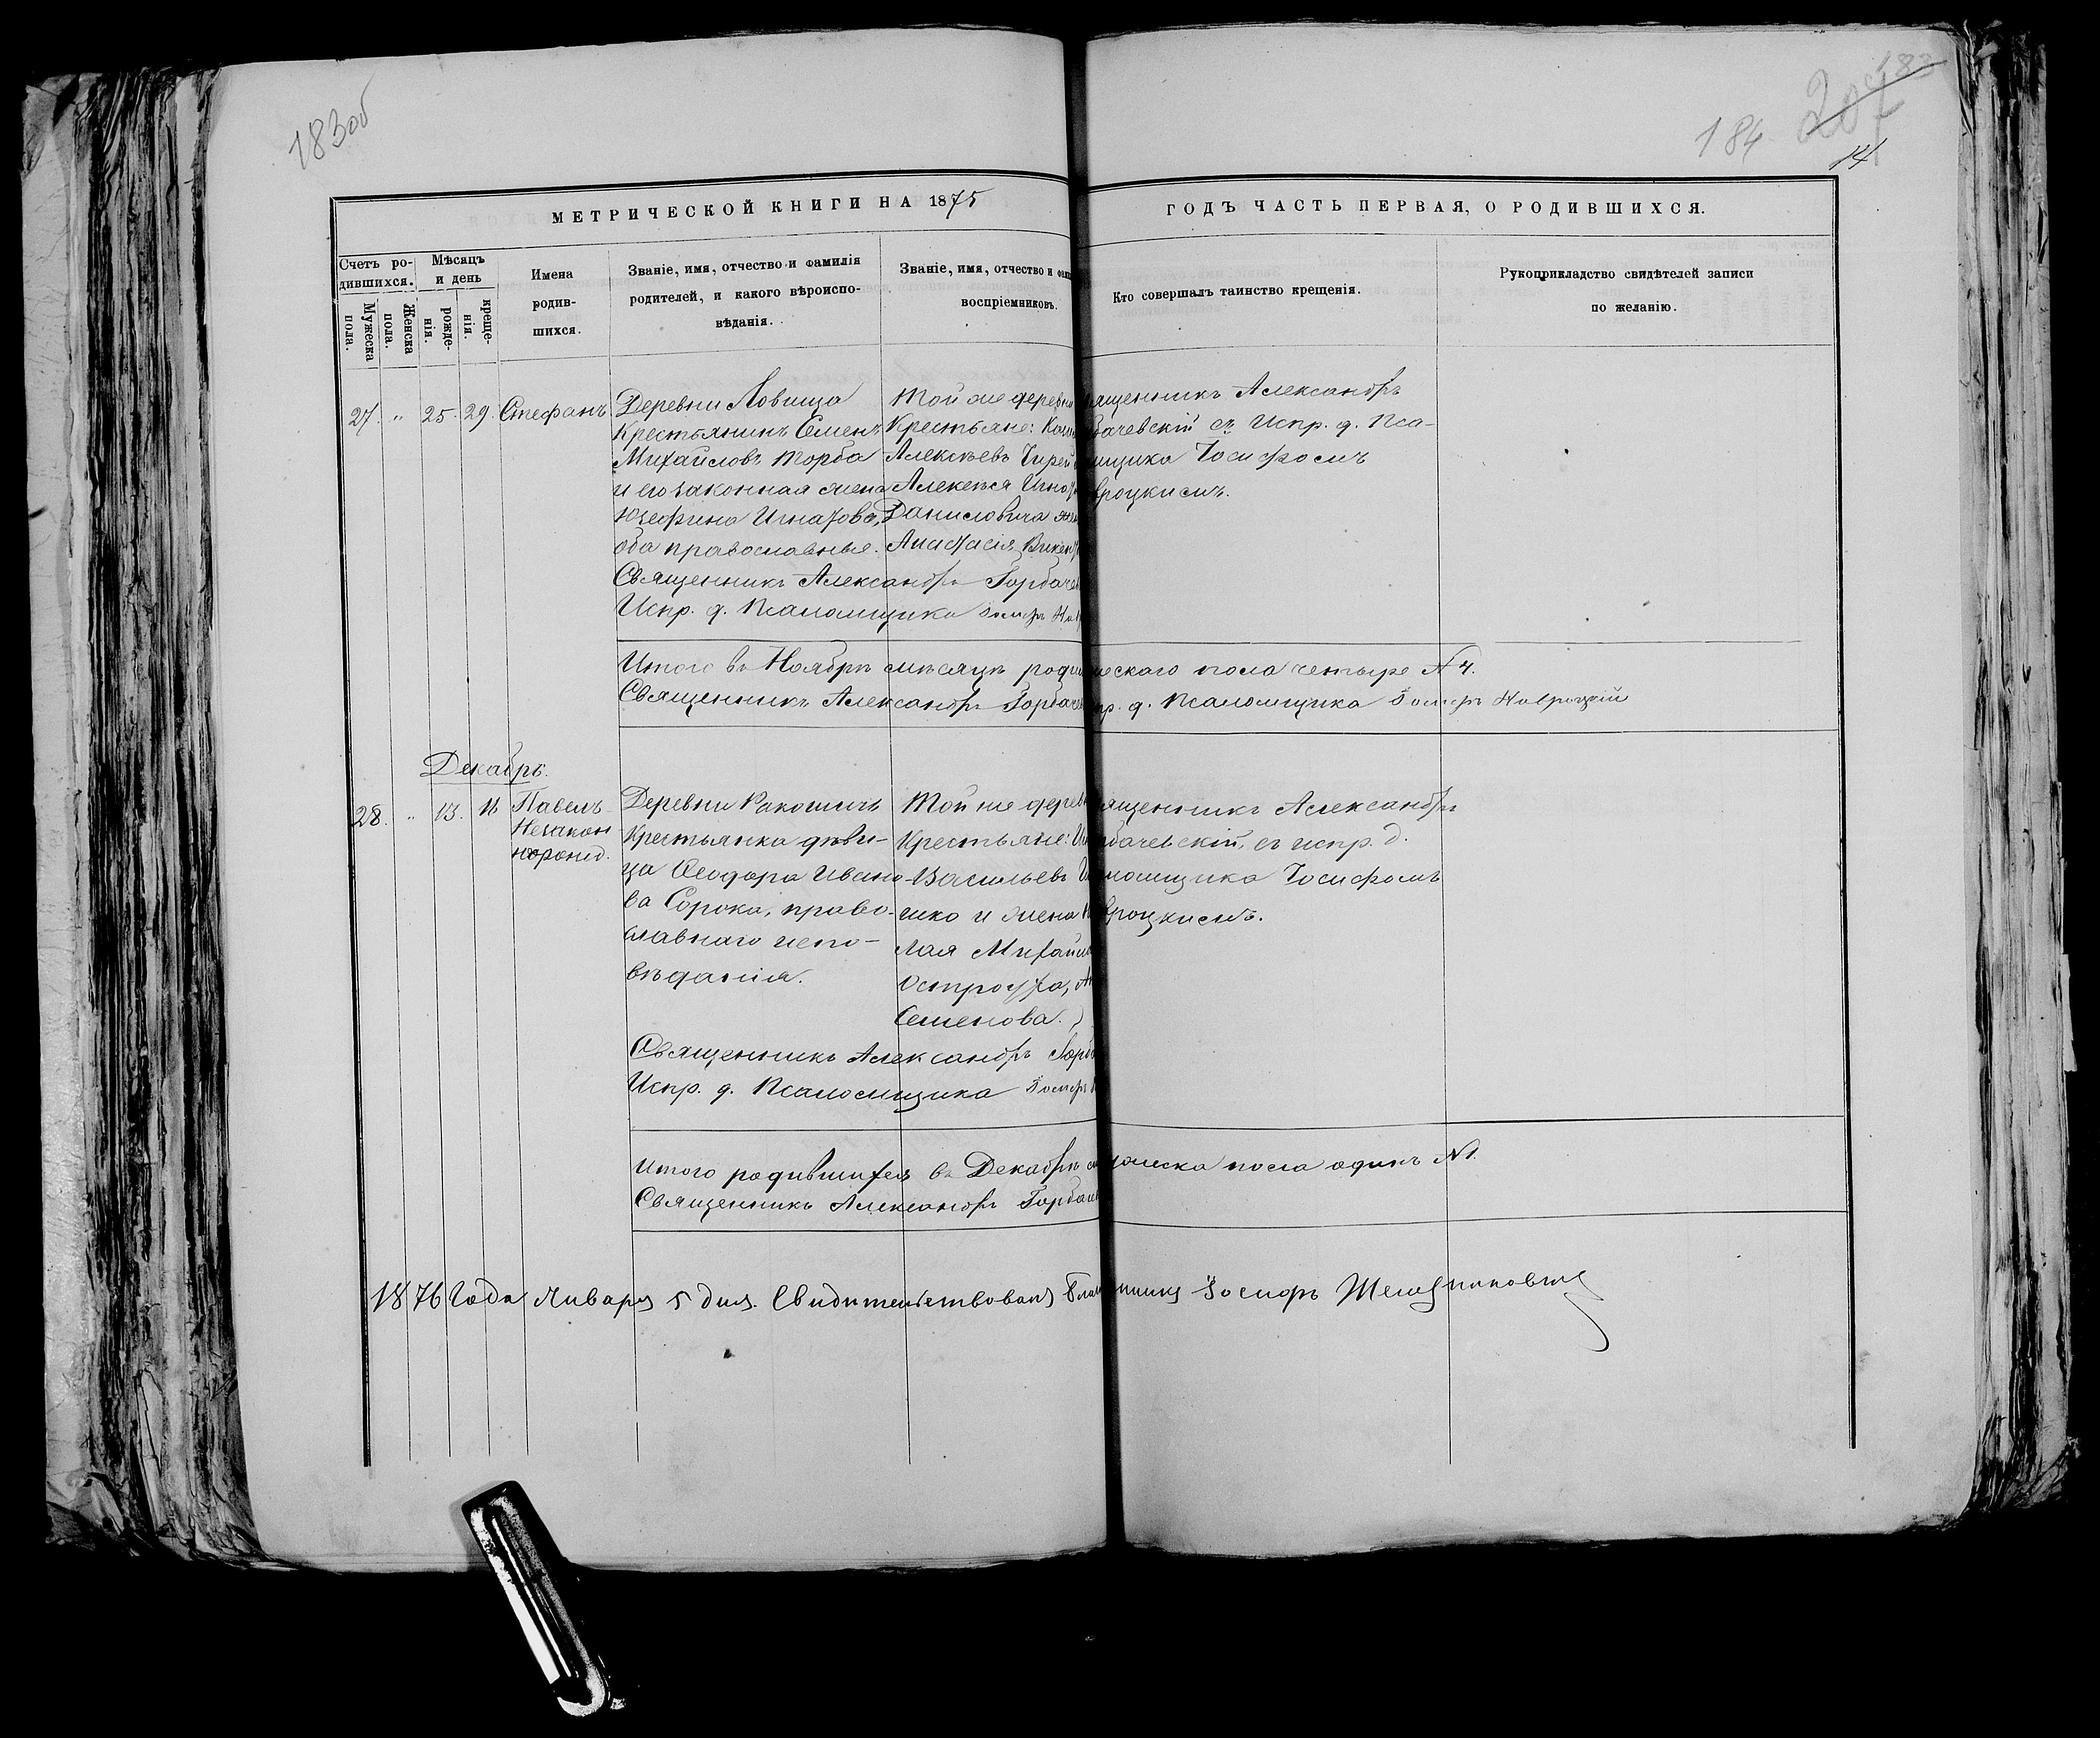 183об
183
207
184
14
МЕТРИЧЕСКОЙ КНИГИ НА 1875
ГОДЪ ЧАСТЬ ПЕРВАЯ, О РОДИВШИХСЯ.
Счетъ ро-
дившихся.
Мужеска
пола.
Женска
пола.
Мѣсяцъ
и день
рожде-
нія.
креще-
нія.
Имена
родив-
шихся.
Званіе, имя, отчество и фамилія
родителей, и какого вѣроиспо-
вѣданія.
Званіе, имя, отчество и фами
воспріемниковъ.
Кто совершалъ таинство крещенія.
Рукоприкладство свидѣтелей записи
по желанію.
27. „ 25. 29. Стефанъ.
Деревни Ловища
Крестьянинъ Семенъ
Михайловъ Торба
и его законная жена
Юзефина Игнатова,
оба православные.
Той же деревни
Крестьяне:
Алексѣевъ
Алексѣя
Даниловича
Анастасія Викен
Священникъ Александръ Горбачев
Испр. д. Псаломщика Іосифъ Нав
ященникъ Александръ
бачевскій съ Испр. д. Пса-
мщика Іосифомъ
вроцкимъ.
Итого въ Ноябрѣ мѣсяцѣ роди ческаго пола четыре № 4.
Священникъ Александръ Горбачев пр. д. Псаломщика Іосифъ Навроцкій
Декабрь.
28. „ 13. Павелъ
Незакон
норожд.
Деревни Ракошичъ
Крестьянка дѣви-
ца Ѳеодора Ивано-
ва Сорока, право-
славнаго испо-
вѣданія.
Той же дерев
Крестьяне:
Васильевъ
и жена
Михайло
Остроуха,
Семенова.
Священникъ Александръ Горб
Испр. д. Псаломщика Іосифъ
ященникъ Александръ
бачевскій, съ испр. д.
ломщика Іосифомъ
вроцкимъ.
Итого родившихся въ Декабрѣ м ужеска пола одинъ №1.
Священникъ Александръ Горбачев
1876 Года Января 5 дня. Свидѣтельствовалъ Іосифъ